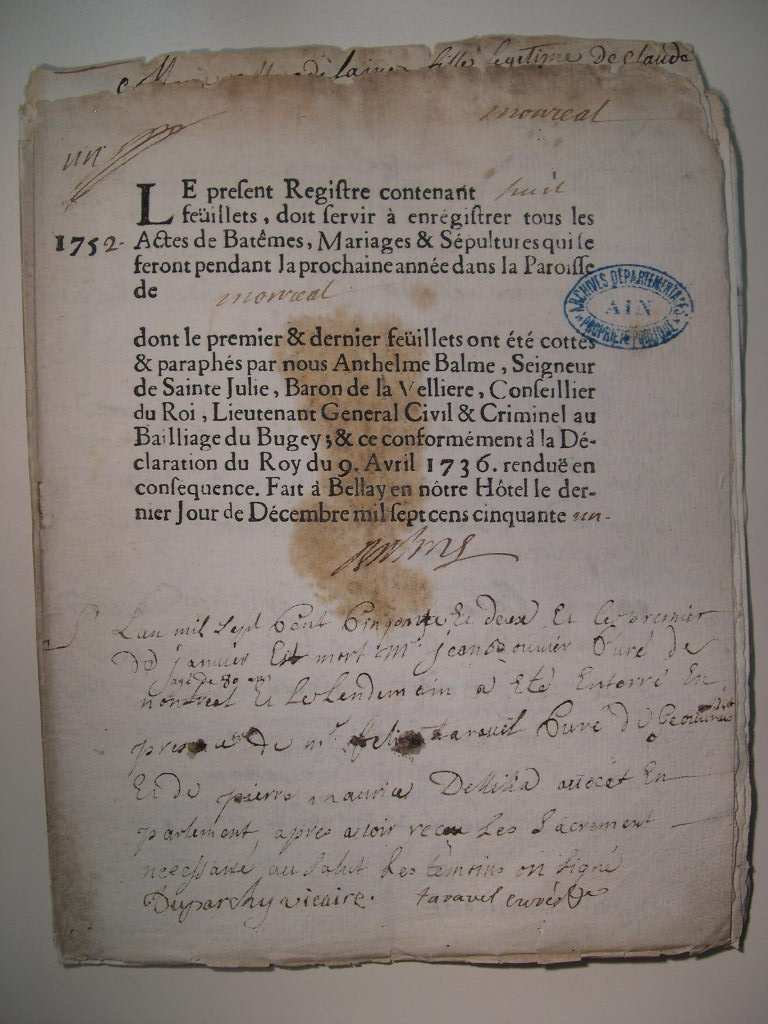 fille legitime de claude
monreal
un
LE preſent Regiſtre contenant huit
feüillets, doit ſervir à enrégiſtrer tous les
1752. Actes de Batêmes, Mariages & Sépultures qui ſe
feront pendant la prochaine année dans la Paroiſſe
de monreal
ARCHIVES DÉPARTEMENTALES
AIN
PROPRIÉTÉ PUBLIQUE
dont le premier & dernier feüillets ont été cottés
& paraphés par nous Anthelme Balme, Seigneur
de Sainte Julie, Baron de la Velliere, Conſeillier
du Roi, Lieutenant General Civil & Criminel au
Bailliage du Bugey; & ce conformément à la Dé-
claration du Roy du 9. Avril 1736. renduë en
conſequence. Fait à Bellay en nôtre Hôtel le der-
nier Jour de Décembre mil ſept cens cinquante un.
Lan mil sept Cent Cinquante Et deux Et le premier
de janvier Est mort mr jean Curé de
agé de 80 ans
montreal Et le lendemain a Eté Enterré En
presence de mr Curé de
Et de pierre maurice avocat En
parlement, apres avoir recu les Sacrement
necessaire au salut les témoins on signé
vicaire. taravel curé